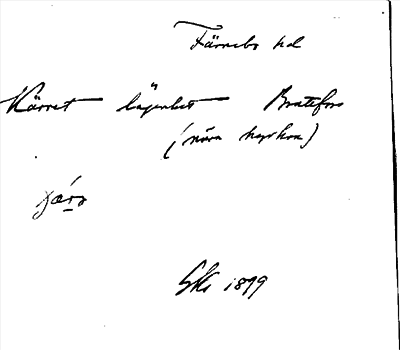 Färnebo hd
Kärret lägenhet Brattfors
(nära kyrkan)
Gks 1899